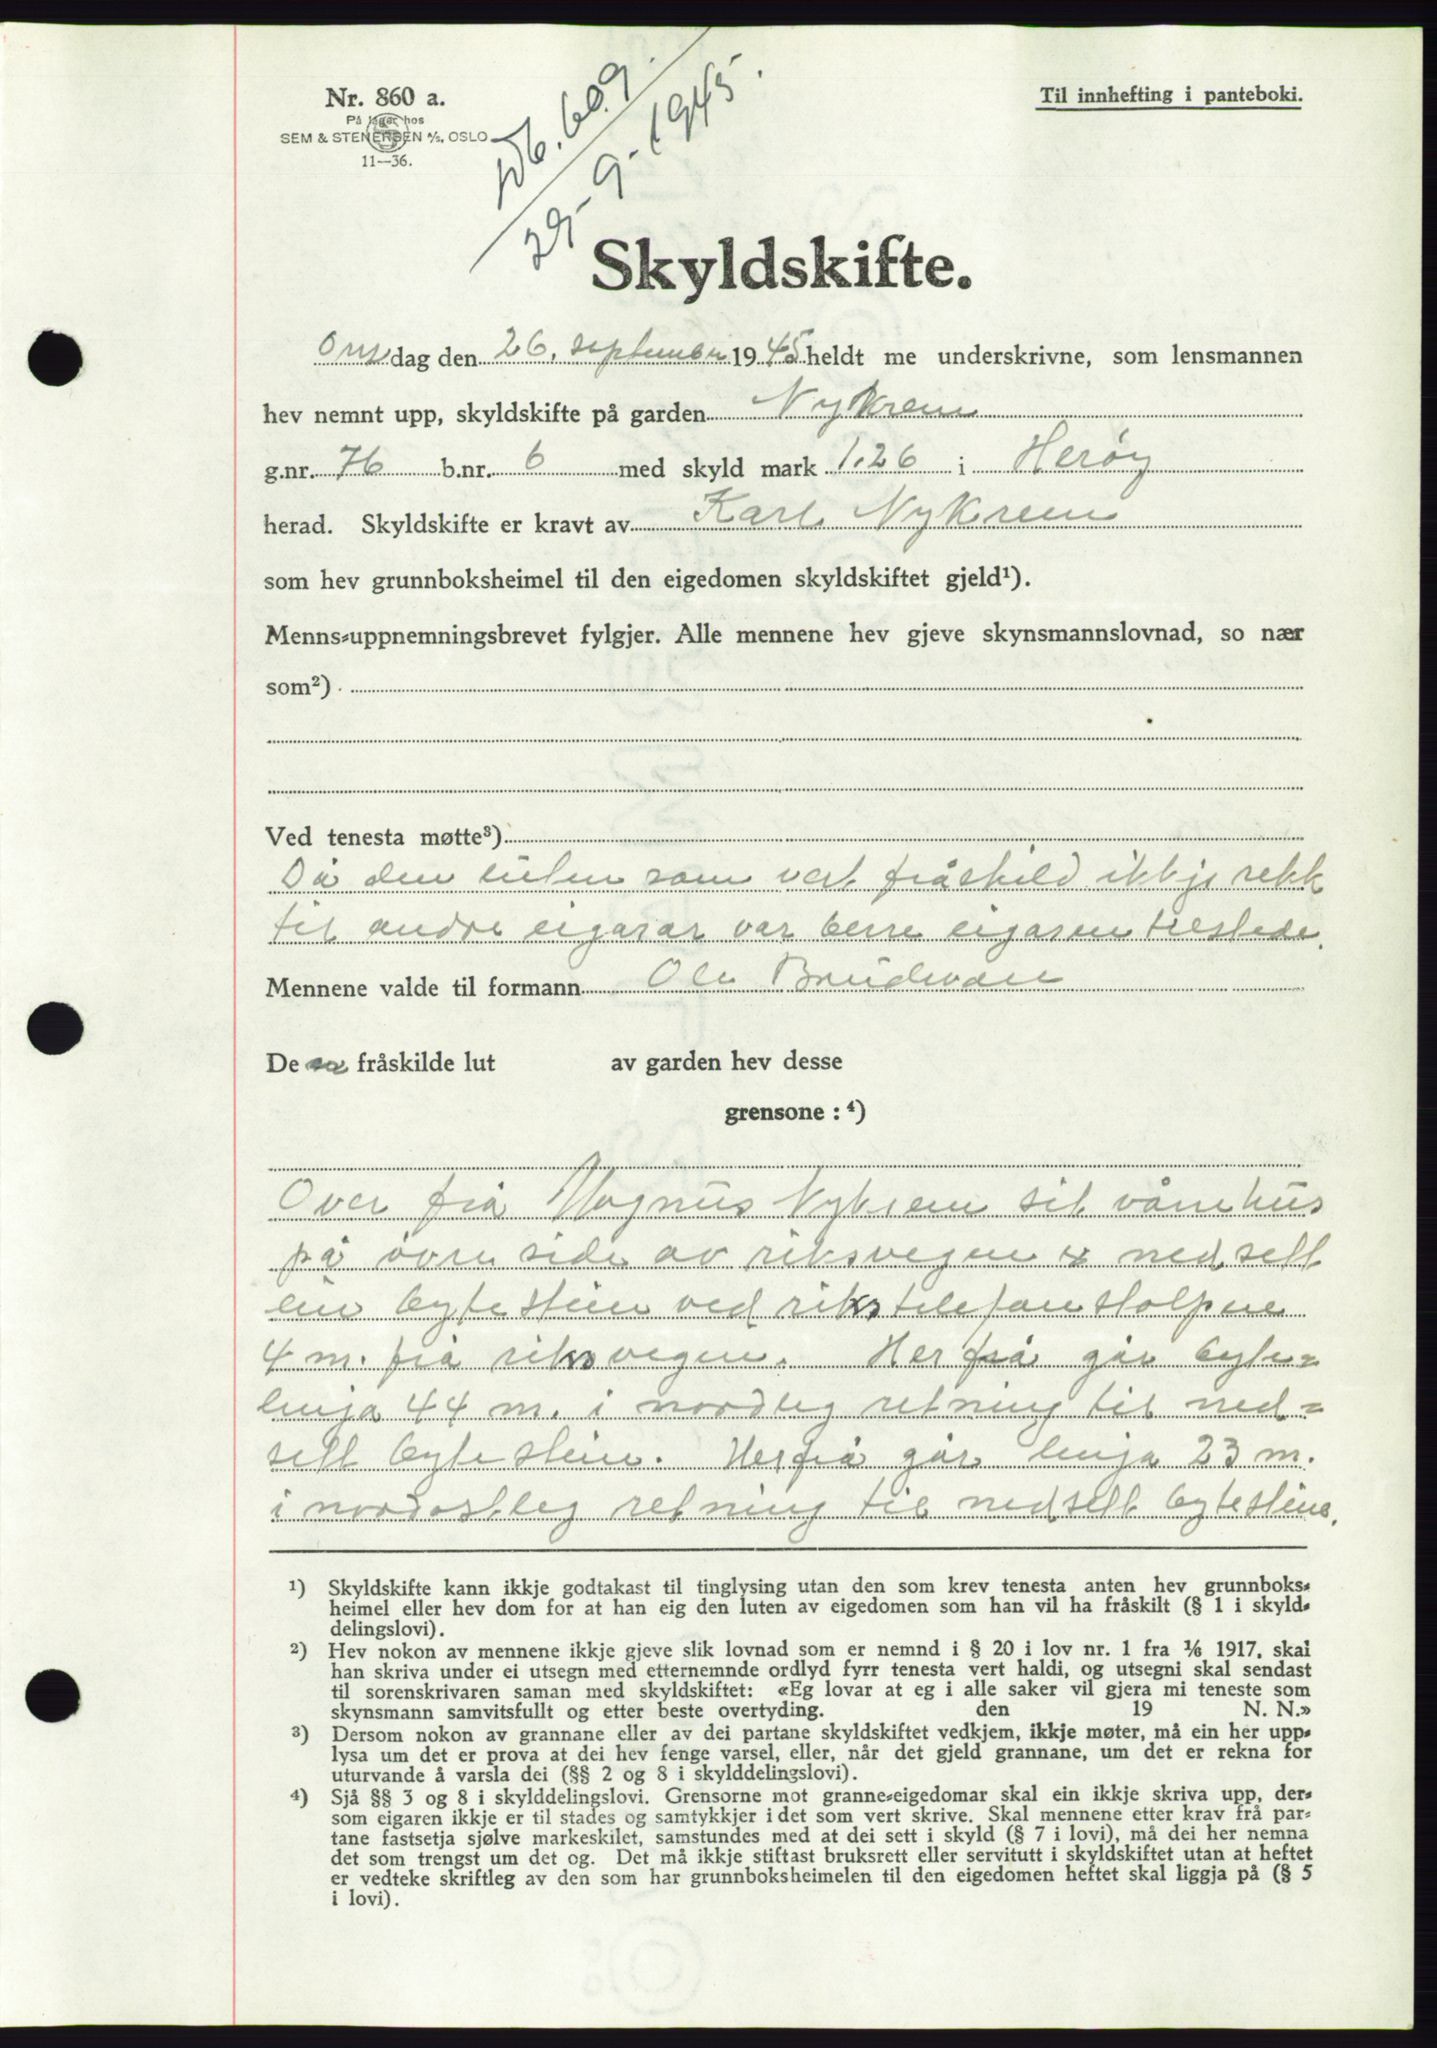 Nr. 860 a.
På lager hos
SEM & STENERSEN A/S, OSLO
11—36.
609.
29-9-1945.
Til innhefting i panteboki.
Skyldskifte.
Onsdag den 26. september 1945 heldt me underskrivne, som lensmannen
hev nemnt upp, skyldskifte på garden Nykrem
g.nr. 76 b.nr. 6 med skyld mark 1.26 i Herøy
herad. Skyldskifte er kravt av Karl Nykrem
som hev grunnboksheimel til den eigedomen skyldskiftet gjeld¹).
Menns-uppnemningsbrevet fylgjer. Alle mennene hev gjeve skynsmannslovnad, so nær
som²)
Ved tenesta møtte³)
Då den luten som vert fråskild ikkje rekk
til andre eigarar var berre eigaren tilstede.
Mennene valde til formann Ole
De fråskilde lut av garden hev desse
grensone : ⁴)
Over frå Magnus Nykrem sit vånehus
på øvre side av riksvegen nedsett
ein bytestein ved rikstelefonstolpene
4 m. frå riksvegen. Herfrå går byte=
linja 44 m. i nordleg retning til ned=
sett bytestein. Herfrå går linja 23 m.
i nordostleg retning til nedsett bytestein.
¹) Skyldskifte kann ikkje godtakast til tinglysing utan den som krev tenesta anten hev grunnboks-
heimel eller hev dom for at han eig den luten av eigedomen som han vil ha fråskilt (§ 1 i skyld-
delingslovi).
²) Hev nokon av mennene ikkje gjeve slik lovnad som er nemnd i § 20 i lov nr. 1 fra 1/6 1917, skal
han skriva under ei utsegn med etternemnde ordlyd fyrr tenesta vert haldi, og utsegni skal sendast
til sorenskrivaren saman med skyldskiftet: «Eg lovar at eg i alle saker vil gjera mi teneste som
skynsmann samvitsfullt og etter beste overtyding. den 19 N. N.»
³) Dersom nokon av grannane eller av dei partane skyldskiftet vedkjem, ikkje møter, må ein her upp-
lysa um det er prova at dei hev fenge varsel, eller, når det gjeld grannane, um det er rekna for
uturvande å varsla dei (§§ 2 og 8 i skylddelingslovi).
⁴) Sjå §§ 3 og 8 i skylddelingslovi. Grensorne mot granne-eigedomar skal ein ikkje skriva upp, der-
som eigaren ikkje er til stades og samtykkjer i det som vert skrive. Skal mennene etter krav frå par-
tane fastsetja sjølve markeskilet, samstundes med at dei sett i skyld (§ 7 i lovi), må dei her nemna
det som trengst um det og. Det må ikkje stiftast bruksrett eller servitutt i skyldskiftet utan at heftet
er vedteke skriftleg av den som har grunnboksheimelen til den eigedomen heftet skal liggja på (§ 5
i lovi).